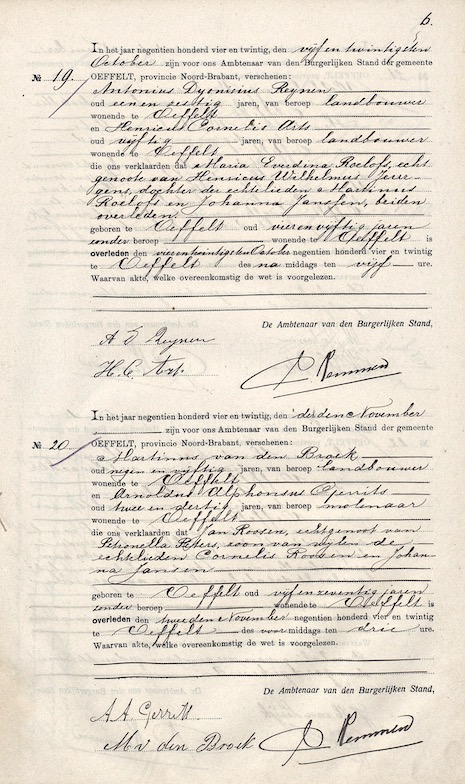 6.
In het jaar negentien honderd vier en twintig, den vijf en twintigsten
October zijn voor ons Ambtenaar van den Burgerlijken Stand der gemeente
№ 19. OEFFELT, provincie Noord-Brabant, verschenen:
Antonius Dyonisius Reynen
oud een en zestig jaren, van beroep landbouwer
wonende te Oeffelt
en Henricus Cornelis Arts
oud vijftig jaren, van beroep landbouwer
wonende te Oeffelt
die ons verklaarden dat Maria Everdina Roelofs, echt
genoote van Henricus Wilhelmus Jeur-
gens, dochter der echtelieden Martinus
Roelofs en Johanna Janssen, beiden
overleden.
geboren te Oeffelt oud vier en vijftig jaren
zonder beroep wonende te Oeffelt is
overleden den vier en twintigsten October negentien honderd vier en twintig
te Oeffelt des na middags ten vijf ure.
Waarvan akte, welke overeenkomstig de wet is voorgelezen.
De Ambtenaar van den Burgerlijken Stand,
A D Reynen
H. C. Arts.
In het jaar negentien honderd vier en twintig, den derden November
zijn voor ons Ambtenaar van den Burgerlijken Stand der gemeente
№ 20. OEFFELT, provincie Noord-Brabant, verschenen:
Martinus van den Broek
oud negen en vijftig jaren, van beroep landbouwer
wonende te Oeffelt
en Arnoldus Alphonsus Gerrits
oud twee en dertig jaren, van beroep molenaar
wonende te Oeffelt
die ons verklaarden dat Jan Roosen, echtgenoot van
Petronella Peters, zoon van wijlen de
echtelieden Cornelis Roosen en Johan-
na Jansen
geboren te Oeffelt oud vijf en zeventig jaren
zonder beroep wonende te Oeffelt is
overleden den tweeden November negentien honderd vier en twintig
te Oeffelt des voor middags ten drie ure.
Waarvan akte, welke overeenkomstig de wet is voorgelezen.
De Ambtenaar van den Burgerlijken Stand,
A. A. Gerrits
M. v den Broek